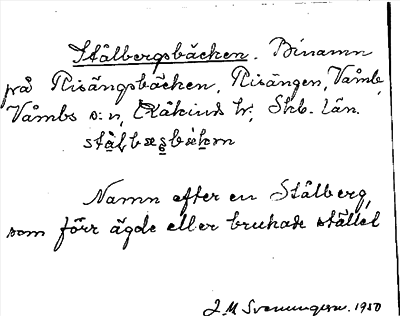 Stålbergsbäcken. Binamn
på Risängsbäcken, Risängen, Våmb,
Våmbs s:n, Kåkinds hr, Skb. län.
Namn efter en Stålberg,
som förr ägde eller brukade stället
J. M. Svenungsson. 1950